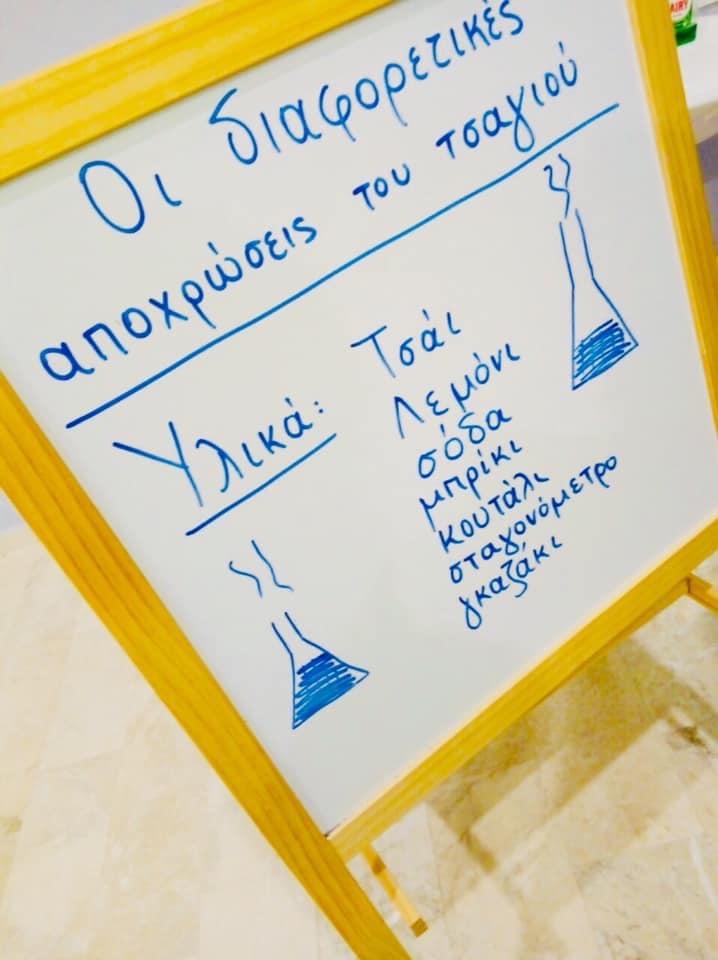 Οι διαφορετικές
αποχρώσεις του τσαγιού
Υλικά:
Τσάι
Λεμόνι
σόδα
μπρίκι
κουτάλι
σταγονόμετρο
γκαζάκι
AIRY